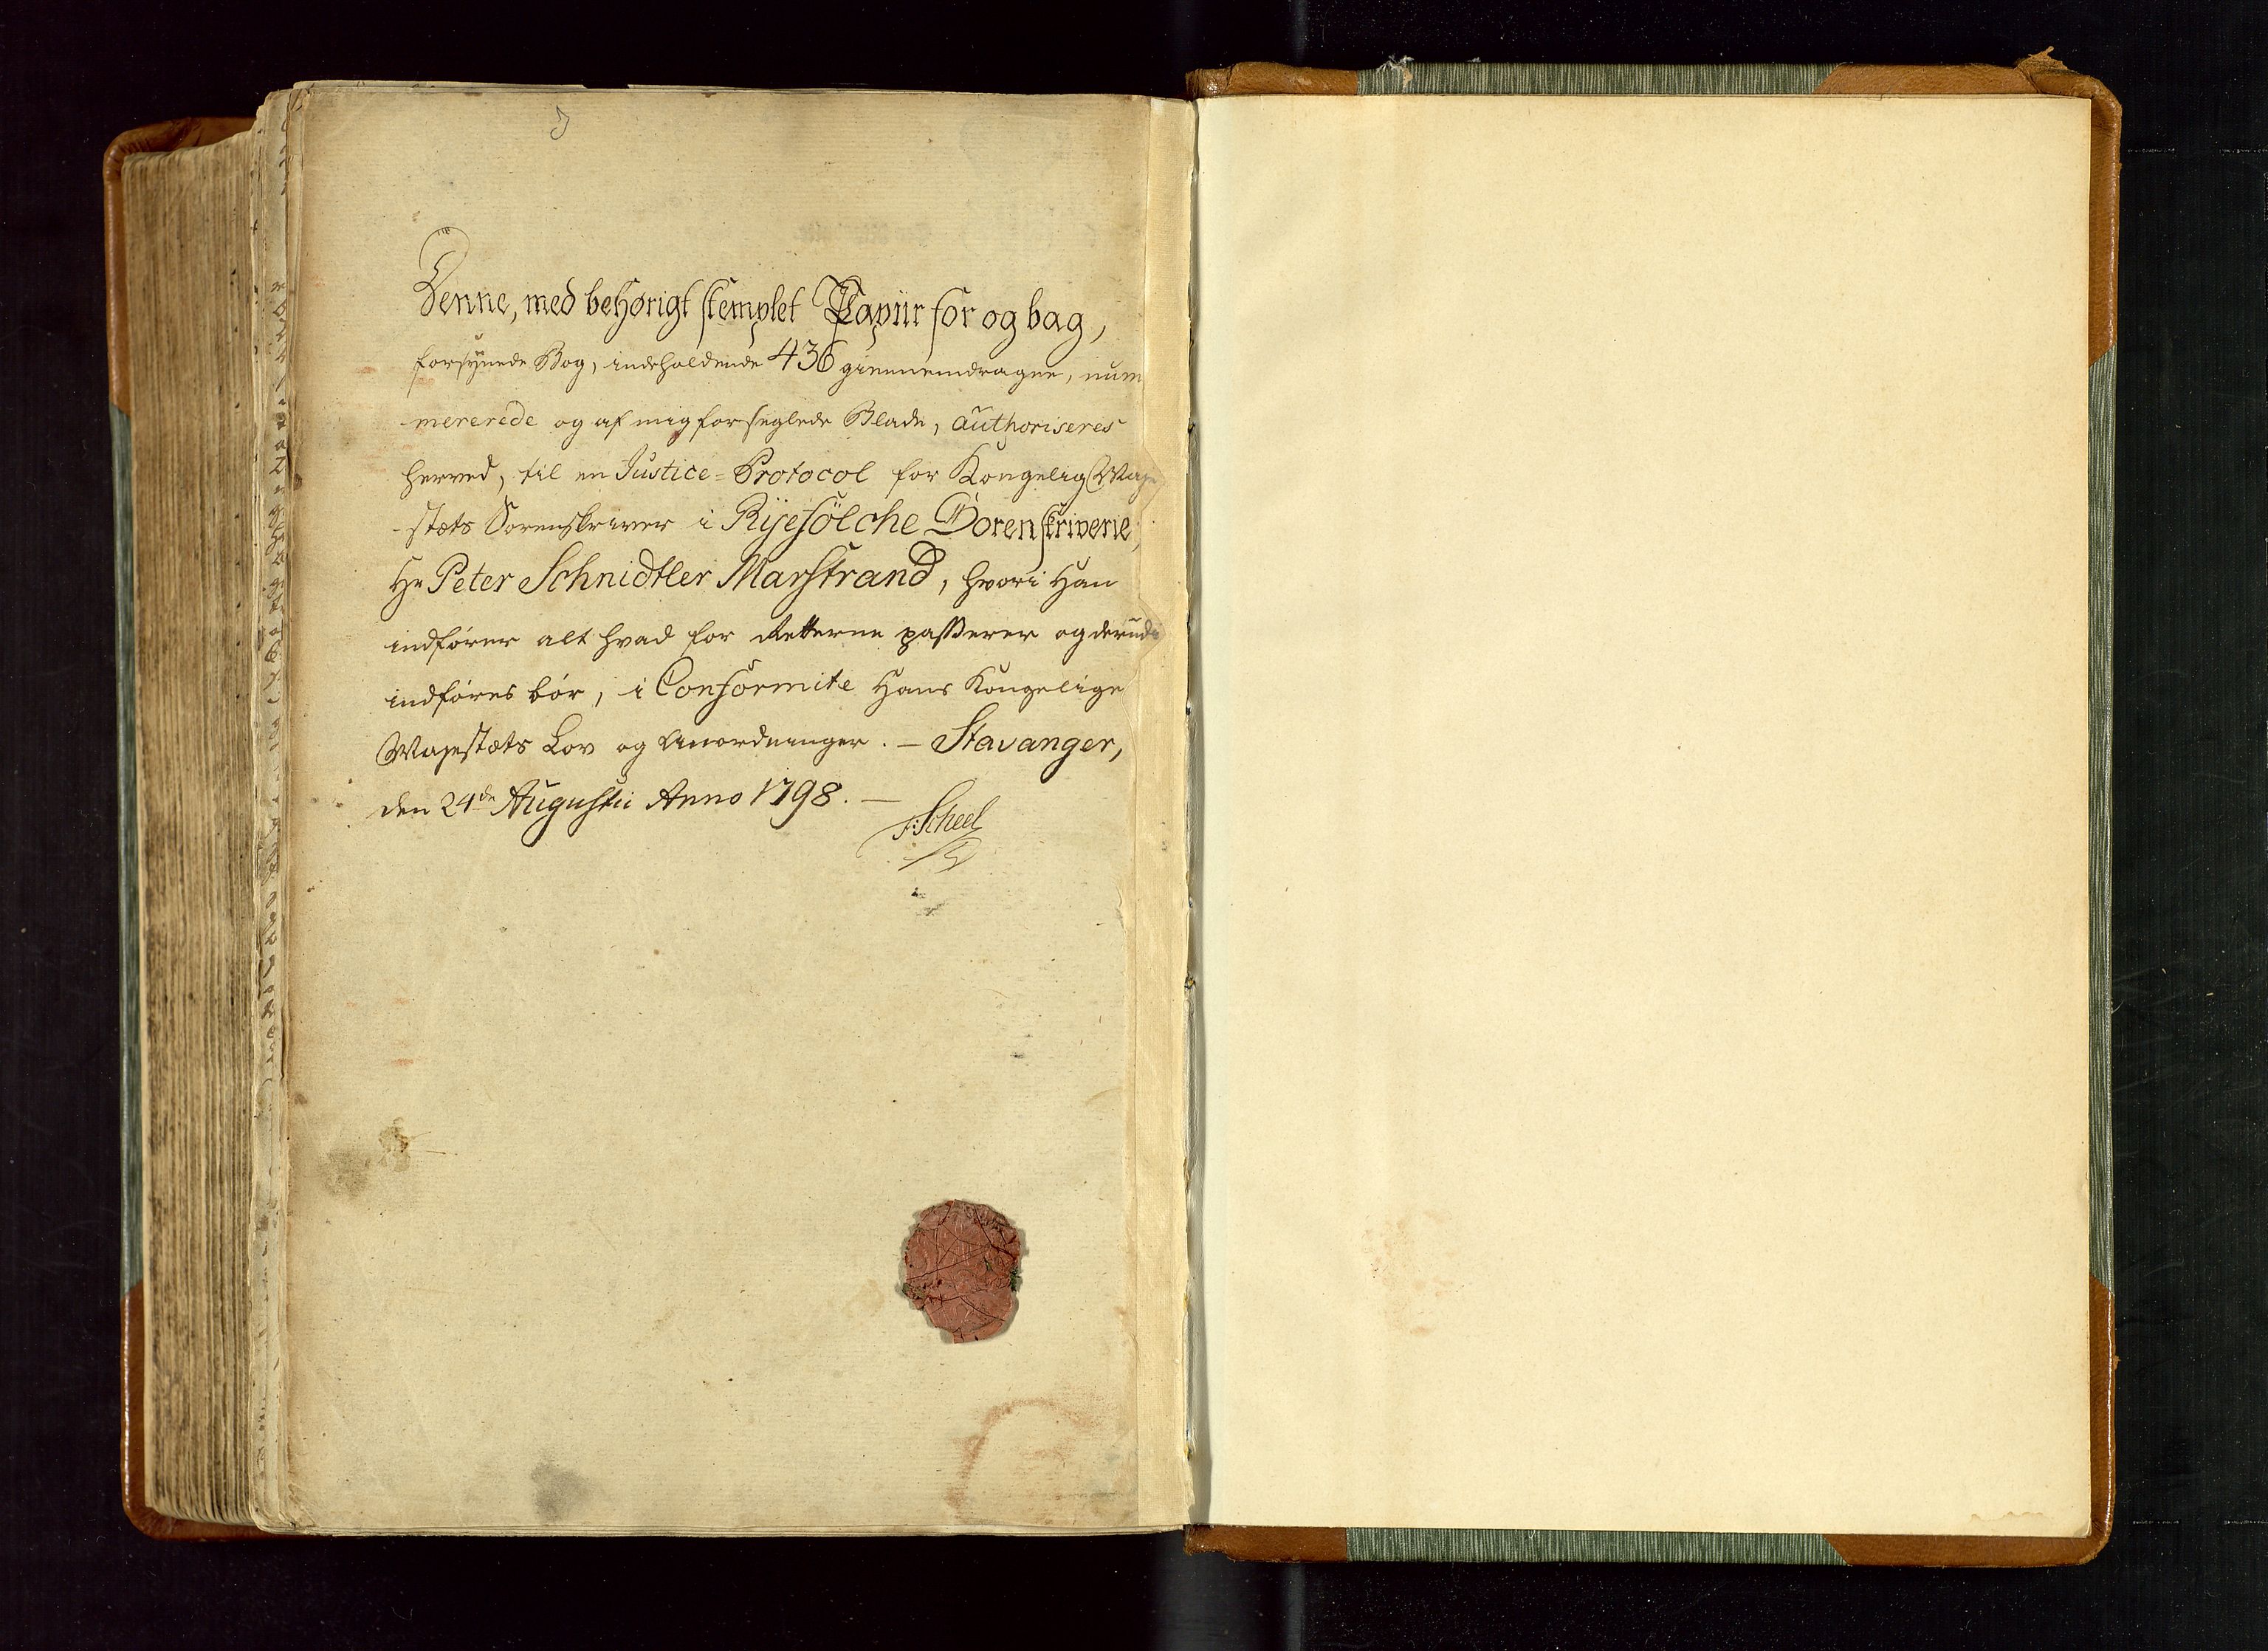 Denne, med behørigt stemplet Papiir for og bag,
forsÿnede Bog, indeholdende 436 giennemdragne, num
mererede og af mig forseglede Blade, authoriseres
herved, til en Justice-Protocol for Kongelig Maje
-stæts Sorenskriver i Rÿefÿlche Sorenskriverie,
Hr Peter Schnidtler Marstrand, hvori Han
indfører alt hvad for Retterne passerer og derudi
indføres bør, i Conformite Hans Kongelige
Majestæts Lov og Anordninger. — Stavanger,
den 24de Augustii Anno 1798. —
F: Scheel